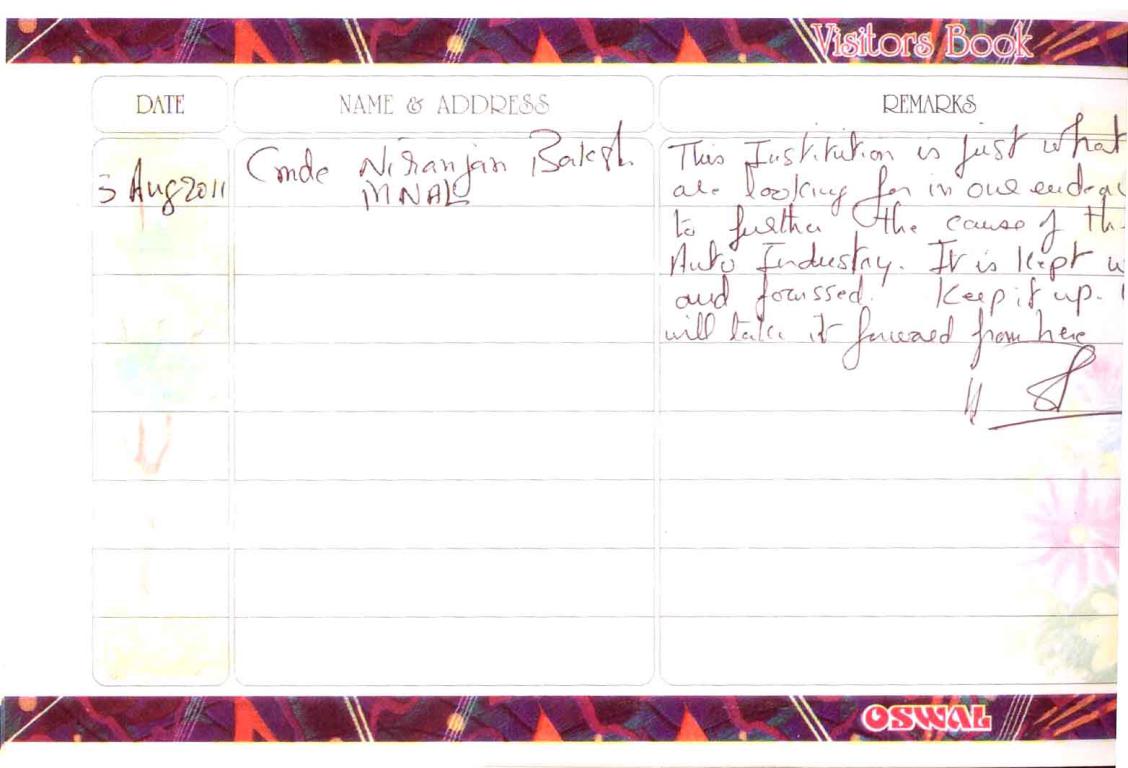 Visitors Book
DATE
NAME & ADDRESS
REMARKS
5 Aug 2011
Cmde Niranjan
MNAL
This Institution is just what
are looking for in our endea
to further the cause of th
Auto Industry. It is kept w
and focussed. Keep it up.
will take it forward from here
OSWAL